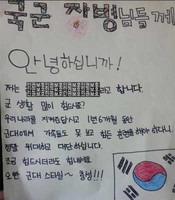 국군 장병님들께
안녕하십니까!
저는 라고 합니다.
군 생활 많이 힘드시죠?
우리나라를 지켜주시고 1년 6개월 동안
군대에서 가족들도 못 보고 힘든 훈련을 해야 하다니..
정말 위대하고 대단하십니다.
조금 힘드시더라도 힘내세요.
오빤 군대 스타일~ 충성!!!